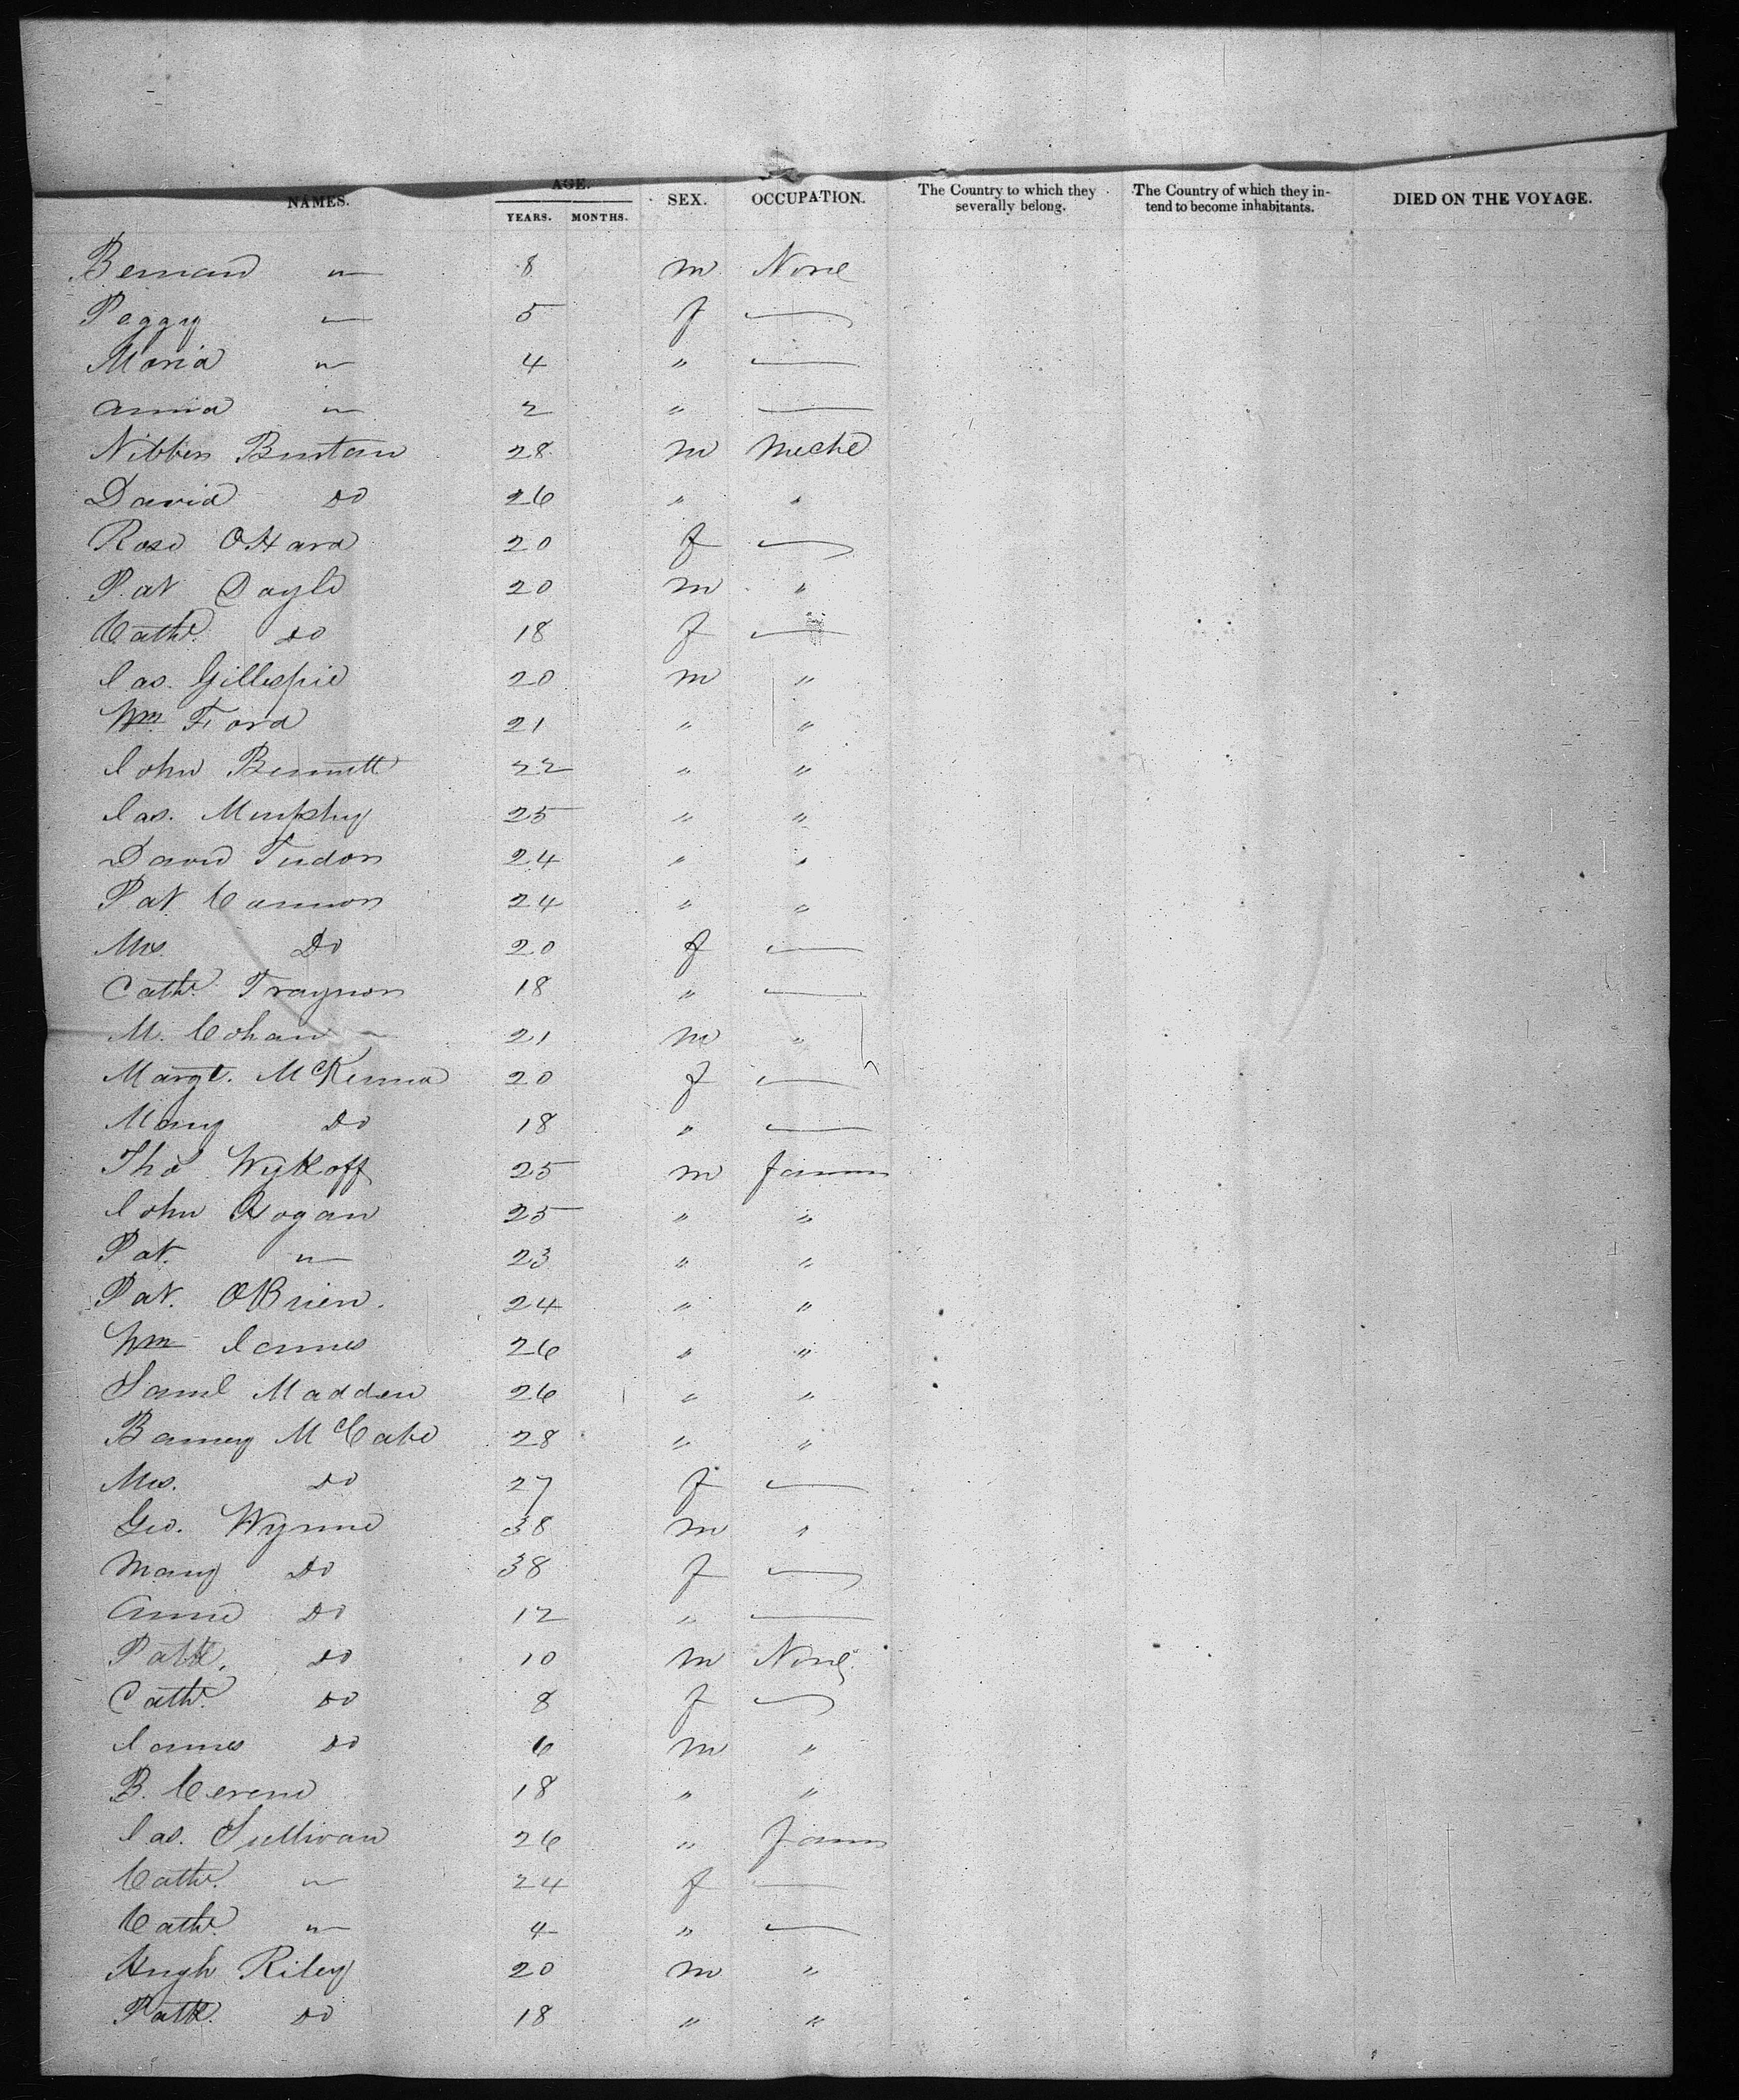 NAMES. AGE. YEARS. MONTHS. SEX. OCCUPATION. The Country to which they severally belong. The Country of which they intend to become inhabitants. DIED ON THE VOYAGE.
Bernard " 8 m None
Peggy " 5 f —
Maria " 4 " —
Anna " 2 " —
Burtan 28 m Meche
David Do 26 " "
Rose OHara 20 f —
Pat Doyle 20 m "
Cathe. Do 18 f —
Jas. Gillespie 20 m "
Wm. Ford 21 " "
John Bennett 22 " "
Jas. Murphy 25 " "
David Tudor 24 " "
Pat Cannon 24 " "
Mrs. Do 20 f —
Cathe. Traynor 18 " —
M. Cohan 21 m "
Margt. McKenna 20 f —
Mary Do 18 " —
Tho Wykoff 25 m farmr
John Hogan 25 " "
Pat. " 23 " "
Pat. OBrien. 24 " "
Wm James 26 " "
Saml Madden 26 " "
Barney McCabe 28 " "
Mrs. Do 27 f —
Geo. Wynne 38 m "
Mary Do 38 f —
Anne Do 12 " —
Patk. Do 10 m None
Cathe. Do 8 f —
James Do 6 m "
B. 18 " "
Jas. Sullivan 26 " farmr
Cathe. " 24 f —
Cathe. " 4 " —
Hugh Riley 20 m "
Patk. Do 18 " "